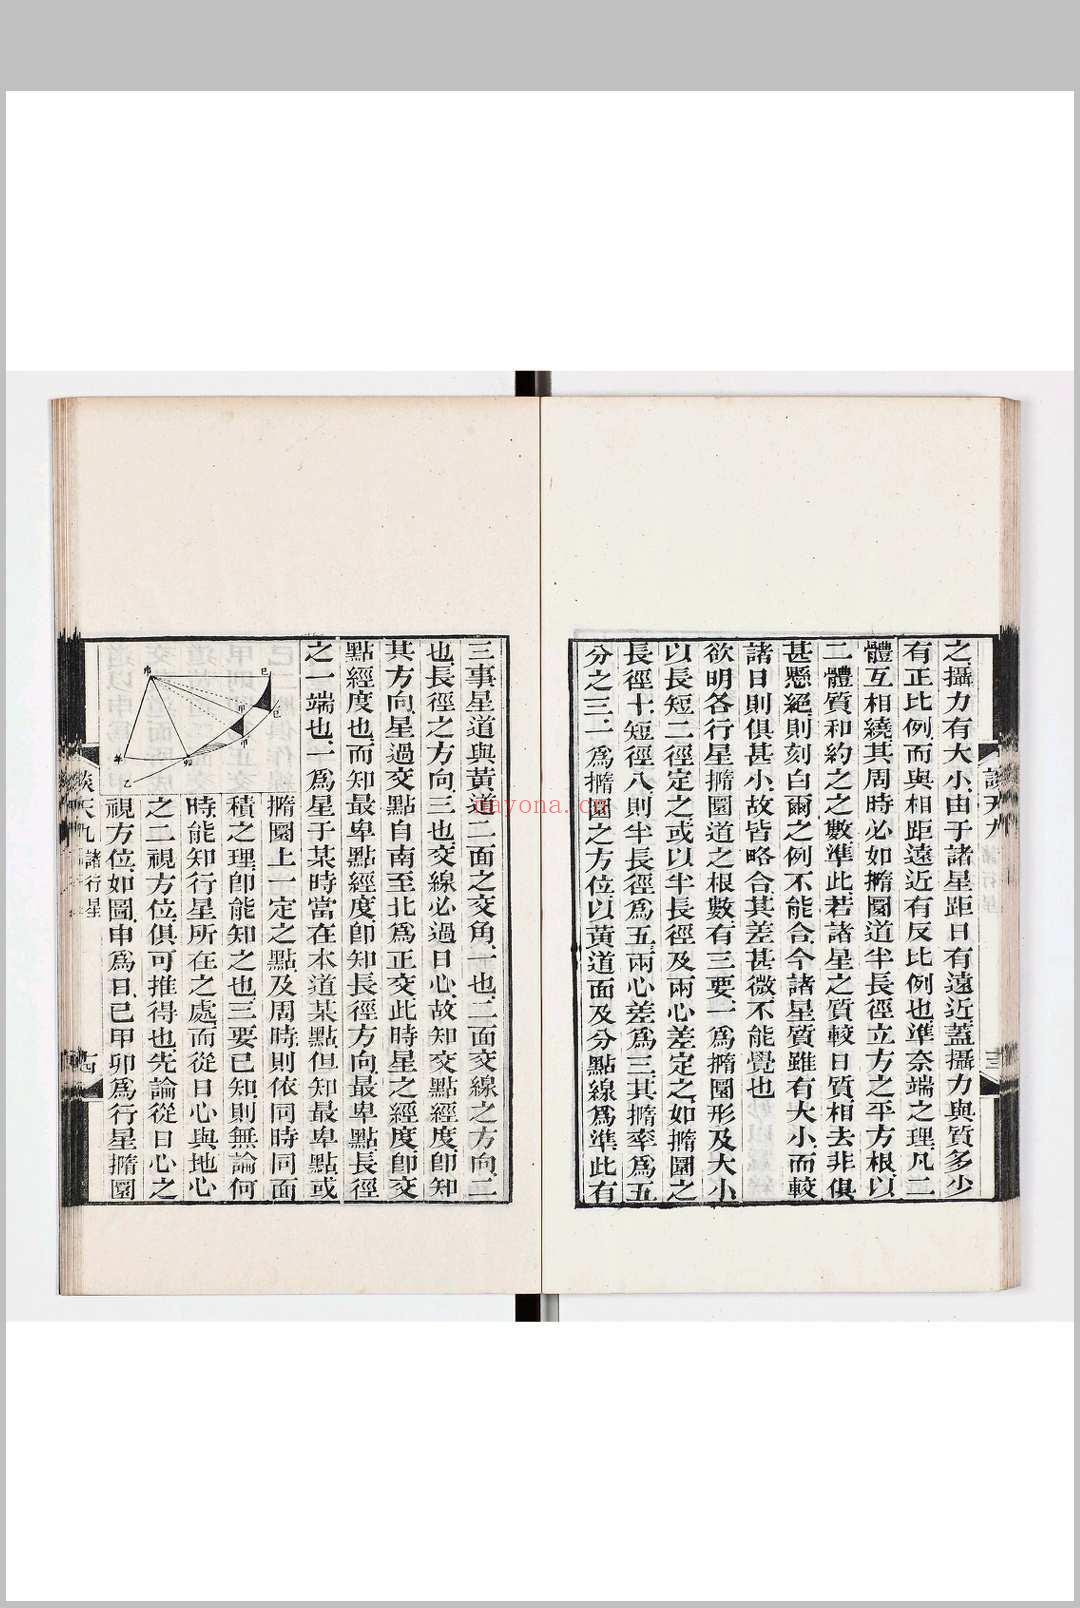 之攝力有大小由于諸星距日有遠近蓋攝力與質多少
有正比例而與相距遠近有反比例也準奈端之理凡二
體互相繞其周時必如撱圜道半長徑立方之平方根以
二體質和約之之數準此若諸星之質較日質相去非俱
甚懸絕則刻白爾之例不能合今諸星質雖有大小而較
諸日則俱甚小故皆略合其差甚微不能覺也
欲明各行星撱圜道之根數有三要一爲撱圜形及大小
以長短二徑定之或以半長徑及兩心差定之如撱圜之
長徑十短徑八則半長徑爲五兩心差爲三其撱率爲五
分之三一爲撱圜之方位以黃道面及分點線爲準此有
談天九
諸行星
十三
三事星道與黃道二面之交角一也二面交線之方向二
也長徑之方向三也交線必過日心故知交點經度卽知
其方向星過交點自南至北爲正交此時星之經度卽交
點經度也而知最卑點經度卽知長徑方向最卑點長徑
之一端也一爲星于某時當在本道某點但知最卑點或
撱圜上一定之點及周時則依同時同面
積之理卽能知之也三要已知則無論何
時能知行星所在之處而從日心與地心
之二視方位俱可推得也先論從日心之
視方位如圖申爲日巳甲卯爲行星撱圜
談天九
諸行星
十四
qayona.cn